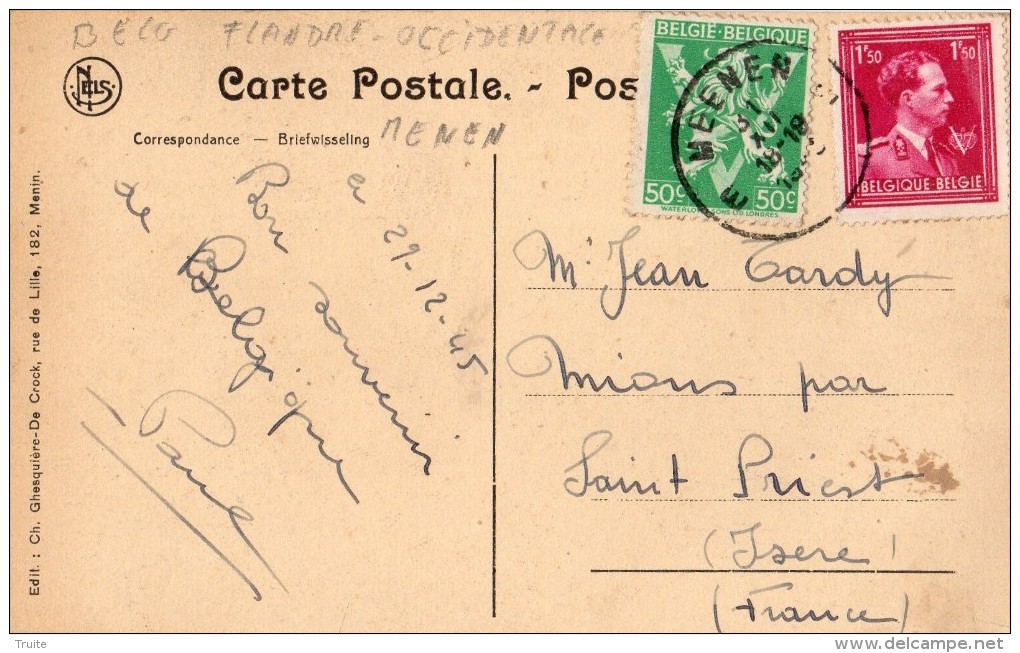 BELG FLANDRE-OCCIDENTALE
BELGIË-BELGIQUE
50c 50c
WATERLOW & SONS LTD. LONDRES
1F50 1F50
BELGIQUE-BELGIE
MEENEN
18-19
NELS
Carte Postale. - Pos
Correspondance — Briefwisseling
MENEN
29-12-45
Bon souvenir
de Belgique
Paul
Mr Jean Tardy
Mions par
Saint Priest
(Isere)
(France)
Edit. : Ch. Ghesquière-De Crock, rue de Lille, 182, Menin.
Truite
DELCAMPE.NET